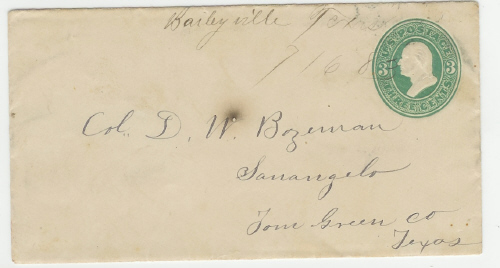 Baileyville Tex
7/6 8
U.S. POSTAGE
3 3
THREE CENTS
Col. D. W. Bozeman
Sanangelo
Tom Green Co..
Texas